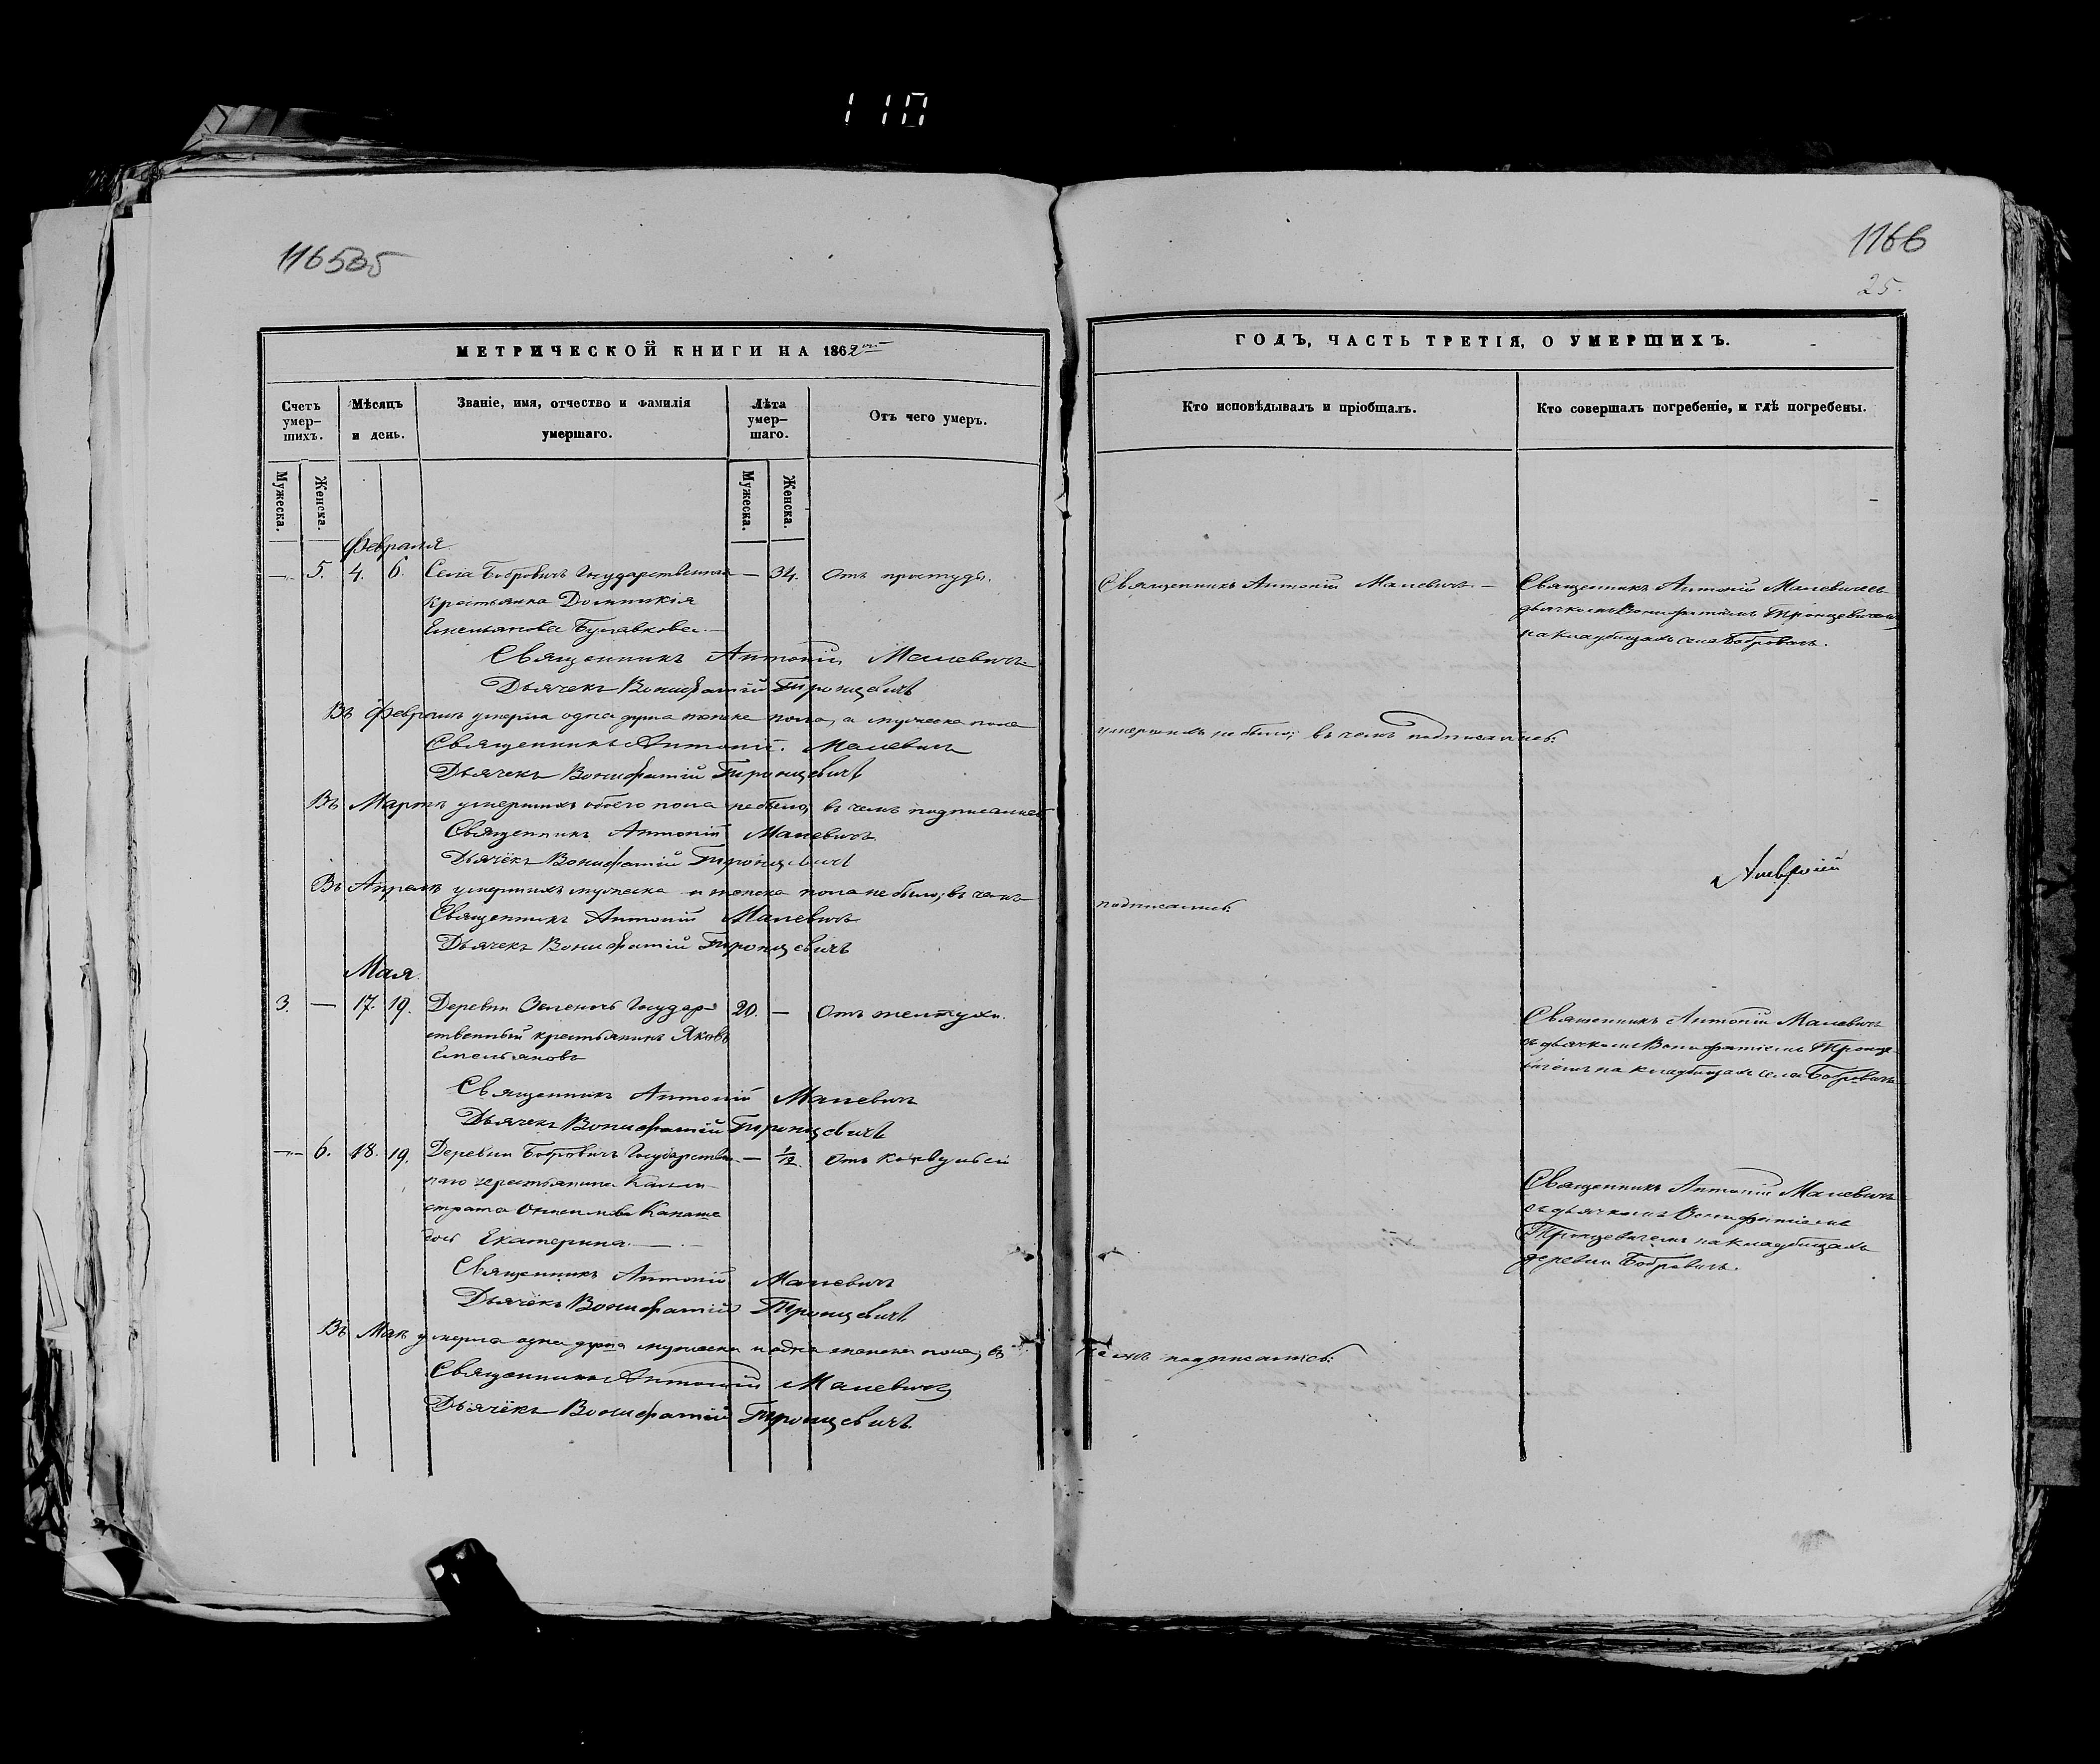 110
116535
1166
25.
МЕТРИЧЕСКОЙ КНИГИ НА 1862
Счетъ умер-шихъ.
Мѣсяцъ и день.
Званіе, имя, отчество и фамилія умершаго.
Лѣта умер-шаго.
Отъ чего умеръ.
Мужеска.
Женска.
Мужеска.
Женска.
Февраля
5. 4. 6. Села Бобровичъ Государственная — 34. Отъ простуды.
крестьянка Домникія
Емельянова Булавкова.
Священникъ Антоній Малевичъ
Дьячекъ Вонифатій Тронцевичъ
Въ Февралѣ умерла одна душа женска пола, а мужеска пола
Священникъ Антоній Малевичъ
Дьячекъ Вонифатій Тронцевичъ
Въ Мартѣ умершихъ обоего пола не было, въ чемъ подписались
Священникъ Антоній Малевичъ
Дьячёкъ Вонифатій Тронцевичъ
Въ Апрелѣ умершихъ мужеска и женска пола не было; въ чемъ
Священникъ Антоній Малевичъ
Дьячекъ Вонифатій Тронцевичъ
Мая
3. — 17. 19. Деревни Зеленочь Государ- 20. — Отъ желтухи.
ственный крестьянинъ Яковъ
Емельяновъ
Священникъ Антоній Малевичъ
Дьячекъ Вонифатій Тронцевичъ
6. 18. 19. Деревни Бобровичъ Государствен — 1/12. Отъ конвульсіи
наго крестьянина Калли
страта Онисимова
Екатерина.
Священникъ Антоній Малевичъ
Дьячёкъ Вонифатій Тронцевичъ
Въ Маѣ умерла одна душа мужеска и одна женска пола, въ
Священникъ Антоній Малевичъ
Дьячёкъ Вонифатій Тронцевичъ.
ГОДЪ, ЧАСТЬ ТРЕТІЯ, О УМЕРШИХЪ.
Кто исповѣдывалъ и пріобщалъ.
Кто совершалъ погребеніе, и гдѣ погребены.
Священникъ Антоній Малевичъ. —
Священникъ Антоній Малевичъ съ
дьячкомъ Вонифатіемъ Тронцевичемъ
на кладбищахъ села Бобровичъ.
умершихъ не было; въ чемъ подписались:
подписались:
Священникъ Антоній Малевичъ
съ дьячкомъ Вонифатіемъ Тронце-
вичемъ на кладбищахъ села Бобровичъ
Священникъ Антоній Малевичъ
съ дьячкомъ Вонифатіемъ
Тронцевичемъ на кладбищахъ
деревни Бобровичъ.
чемъ подписались: